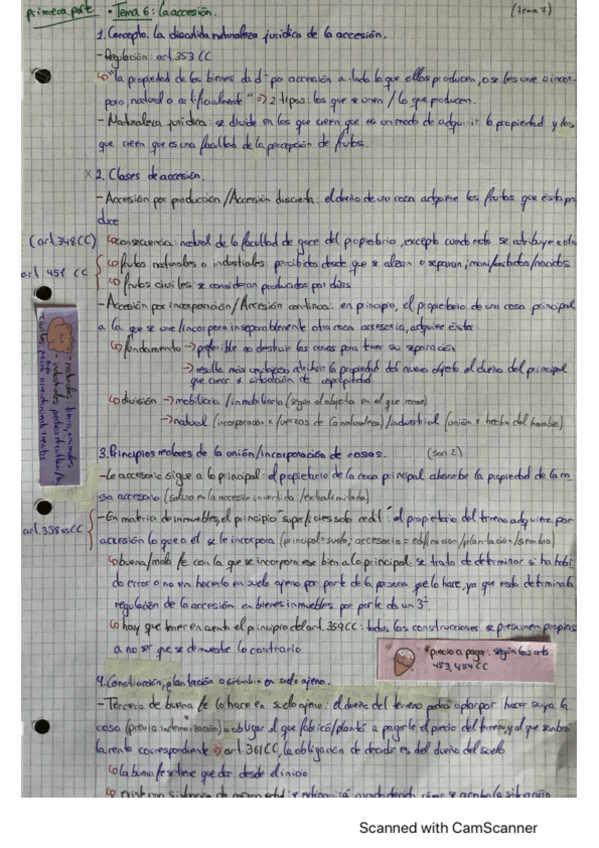 primera parte • Tema 6: la accesión. (Tema 7)
1. Concepto. La discutida naturaleza jurídica de la accesión.
- Regulación: art. 353 CC
"la propiedad de los bienes da dº por accesión a todo lo que ellos producen, o se les une o incor-
pora, natural o artificialmente" => 2 tipos: los que se unen / lo que producen.
- Naturaleza jurídica: se divide en los que creen que es un modo de adquirir la propiedad y los
que creen que es una facultad de la percepción de frutos.
2. Clases de accesión.
- Accesión por producción / Accesión discreta: el dueño de una cosa adquiere los frutos que ésta pro
duce
(art. 348 CC) consecuencia: natural de la facultad de goce del propietario, excepto cuando esto se atribuye a otro
art. 451 CC frutos naturales o industriales percibidos desde que se alzan o separan, manifestados/nacidos
frutos civiles: se consideran producidos por días
- Accesión por incorporación / Accesión continua: en principio, el propietario de una cosa principal
a la que se une/incorpora inseparablemente otra cosa accesoria, adquiere ésta
fundamento → preferible no destruir las cosas para tener su separación
→ resulta más ventajoso atribuir la propiedad del nuevo objeto al dueño del principal
que crear x situación de copropiedad.
división → mobiliaria / inmobiliaria (según el objeto en el que recae)
→ natural (incorporación x fuerzas de la naturaleza) / industrial (unión x hecho del hombre)
3. Principios rectores de la unión/incorporación de cosas. (son 2)
- Lo accesorio sigue a lo principal: el propietario de la cosa principal absorbe la propiedad de la co-
sa accesoria (salvo en la accesión invertida / extralimitada)
art. 358 ss CC - En materia de inmuebles, el principio "superficies solo cedit": el propietario del terreno adquiere por
accesión lo que a él se le incorpora (principal=suelo; accesorio = edificación/plantación/siembra)
buena/mala fe con la que se incorpora ese bien a lo principal: se trata de determinar si ha habi-
do error o no en hacerlo en suelo ajeno por parte de la persona que lo hace, ya que esto determina la
regulación de la accesión en bienes inmuebles por parte de un 3º
hay que tener en cuenta el principio del art. 359 CC: todas las construcciones se presumen propias
a no ser que se demuestre lo contrario.
*precio a pagar: según los arts
453, 454 CC
4. Construcción, plantación o siembra en suelo ajeno.
- Tercero de buena fe lo hace en suelo ajeno: el dueño del terreno podrá optar por hacer suya la
cosa (previa indemnización) o obligar al que fabricó/plantó a pagarle el precio del terreno, y al que sembró
la renta correspondiente => art. 361 CC, la obligación de decidir es del dueño del suelo
la buena fe se tiene que dar desde el inicio
Scanned with CamScanner